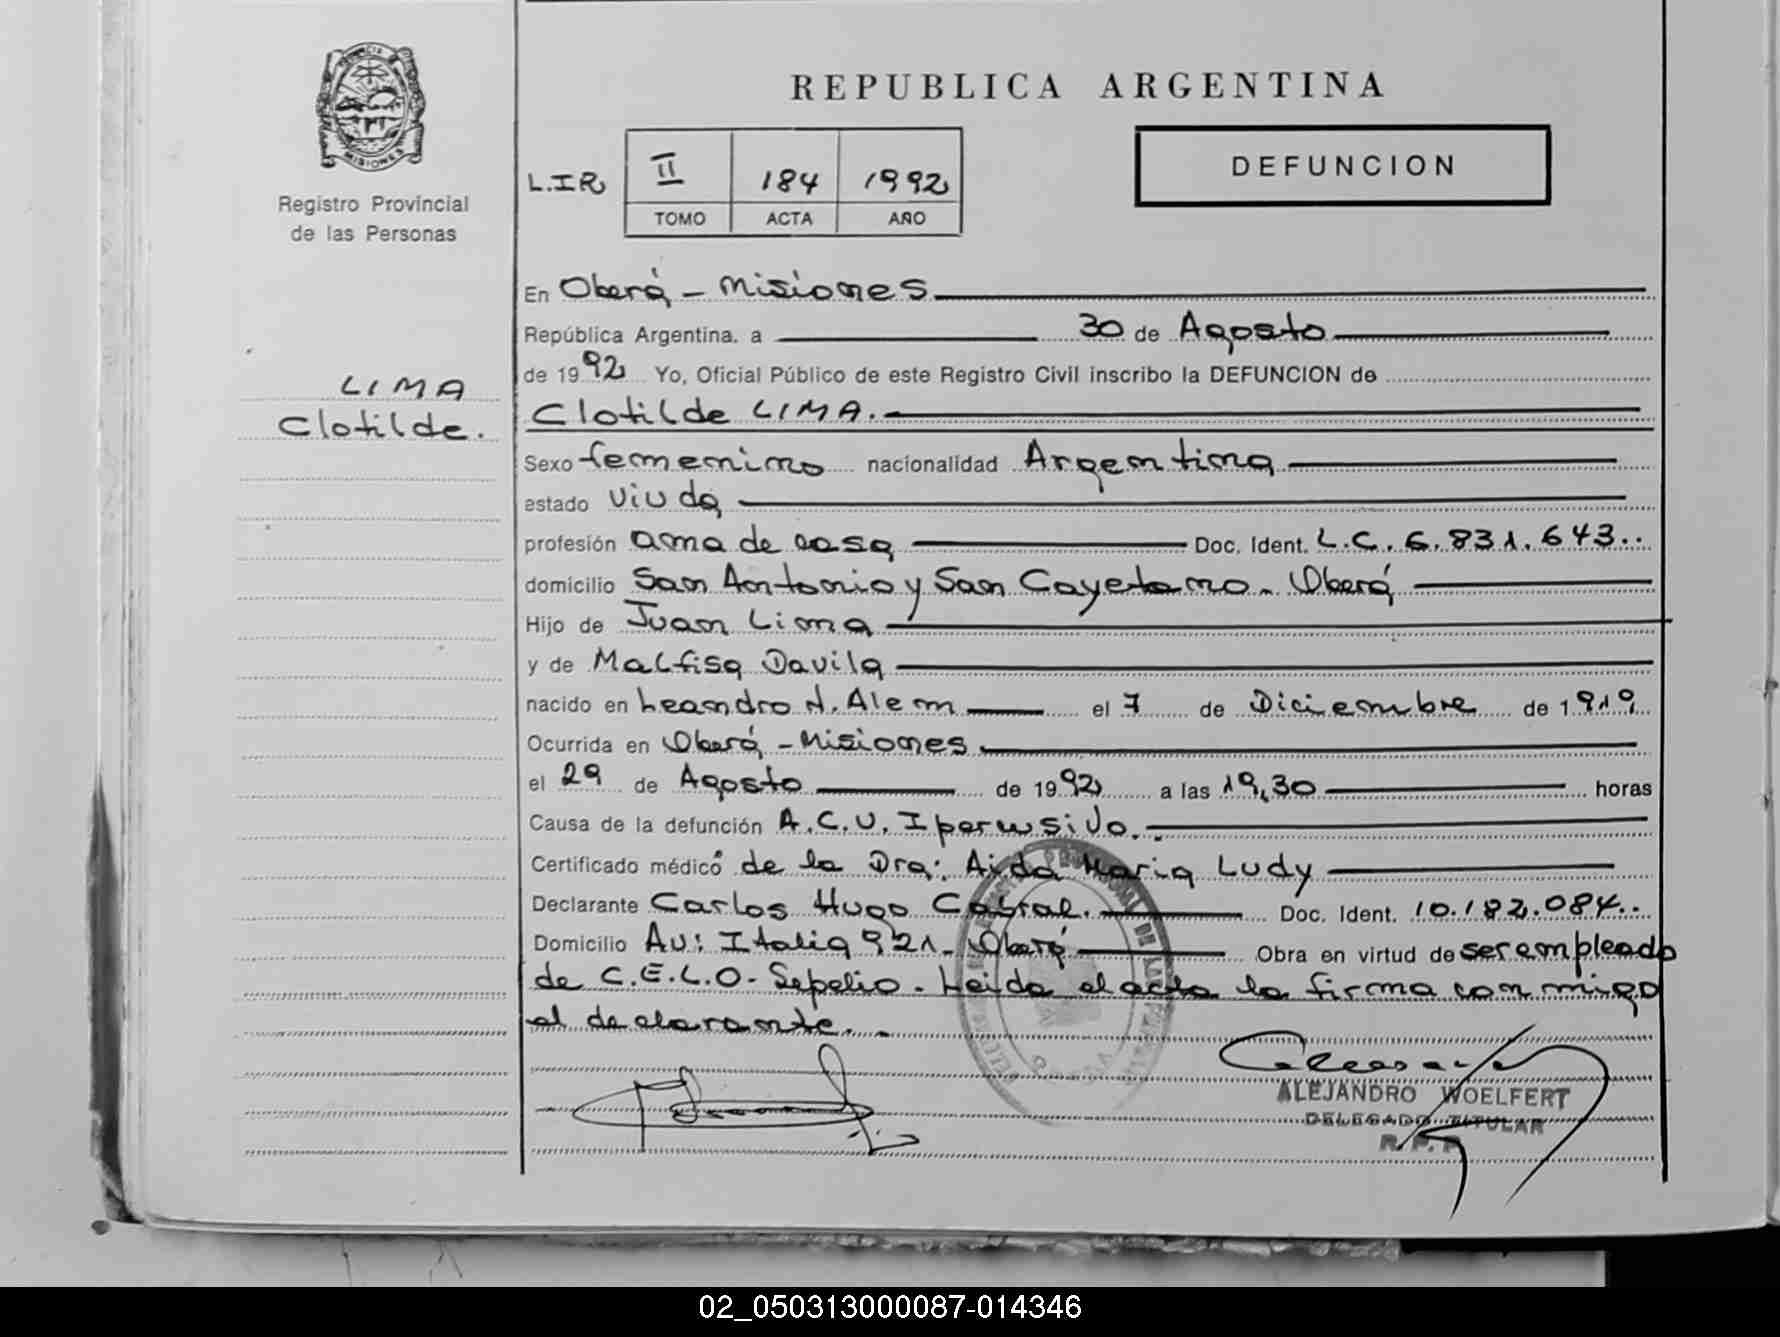 PROVINCIA
MISIONES
Registro Provincial
de las Personas
LIMA
Clotilde.
REPUBLICA ARGENTINA
L.I R
II 184 1992
TOMO ACTA AÑO
DEFUNCION
En Oberá - Misiones
República Argentina, a 30 de Agosto
de 1992 Yo, Oficial Público de este Registro Civil inscribo la DEFUNCION de
Clotilde LIMA.
Sexo femenino nacionalidad Argentina
estado viuda
profesión ama de casa Doc. Ident. L.C. 6.831.643..
domicilio San Antonio y San Cayetano - Oberá
Hijo de Juan Lima
y de Malfisa Davila
nacido en Leandro N. Alem el 7 de Diciembre de 1919
Ocurrida en Oberá - Misiones
el 29 de Agosto de 1992 a las 19,30 horas
Causa de la defunción A.C.V.
Certificado médico de la Dra: Aida Maria Ludy
Declarante Carlos Hugo Cabral. Doc. Ident. 10.182.084..
Domicilio Av: Italia 921 - Oberá Obra en virtud de ser empleado
de C.E.L.O - Sepelio - Leida el acta la firma con migo
el declarante..
ALEJANDRO WOELFERT
DELEGADO TITULAR
R. P. P
02_050313000087-014346